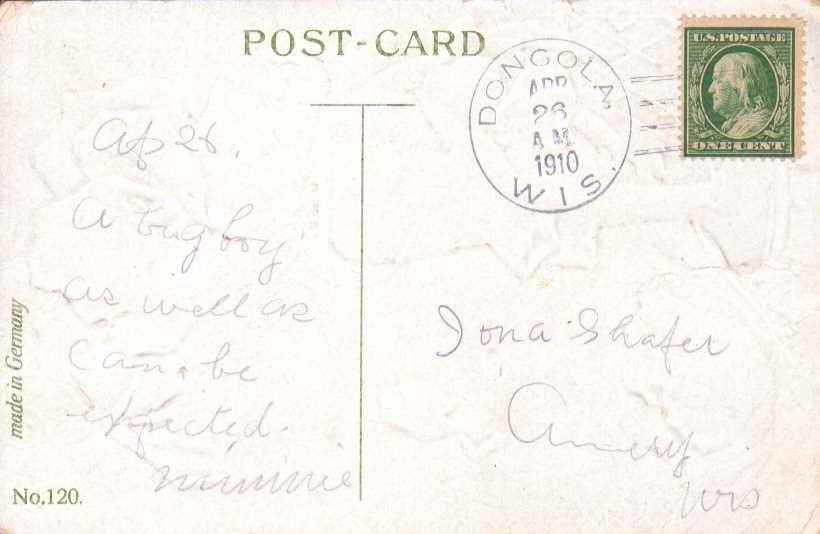 POST-CARD
DONGOLA,
APR
26
A.M.
1910
WIS.
U.S. POSTAGE
ONE CENT
Ap 26.
A big boy
as well as
can be
expected.
Minnie
Iona Shafer
Amery
Wis
made in Germany
No. 120.